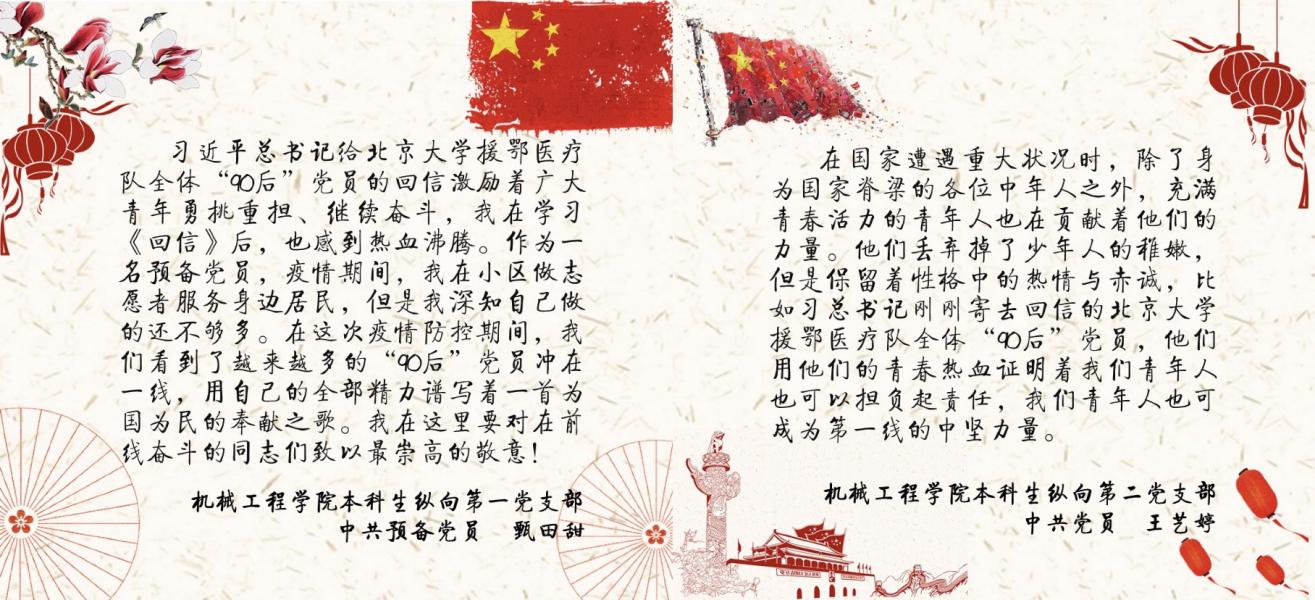 习近平总书记给北京大学援鄂医疗
队全体“90后”党员的回信激励着广大
青年勇挑重担、继续奋斗，我在学习
《回信》后，也感到热血沸腾。作为一
名预备党员，疫情期间，我在小区做志
愿者服务身边居民，但是我深知自己做
的还不够多。在这次疫情防控期间，我
们看到了越来越多的“90后”党员冲在
一线，用自己的全部精力谱写着一首为
国为民的奉献之歌。我在这里要对在前
线奋斗的同志们致以最崇高的敬意！
机械工程学院本科生纵向第一党支部
中共预备党员 甄田甜
在国家遭遇重大状况时，除了身
为国家脊梁的各位中年人之外，充满
青春活力的青年人也在贡献着他们的
力量。他们丢弃掉了少年人的稚嫩，
但是保留着性格中的热情与赤诚，比
如习总书记刚刚寄去回信的北京大学
援鄂医疗队全体“90后”党员，他们
用他们的青春热血证明着我们青年人
也可以担负起责任，我们青年人也可
成为第一线的中坚力量。
机械工程学院本科生纵向第二党支部
中共党员 王艺婷